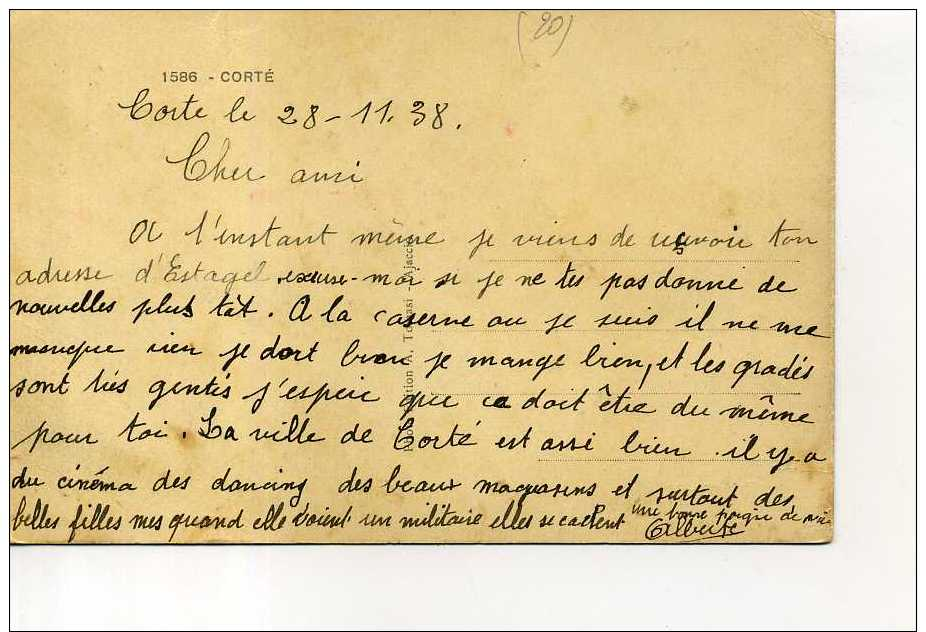 (20)
1586 - CORTÉ
Corte le 28-11.38.
Cher ami
A l'instant même je viens de reçevoir ton
adresse d'Estagel excuse-moi si je ne tes pas donné de
nouvelles plus tät. A la caserne ou je suis il ne me
manque rien je dort bien je mange bien, et les gradés
sont très gentis j'espèir que ca doit être du même
pour toi. La ville de Corté est assi bien il y a
du cinéma des dancing des beaux maguasins et surtout des
belles filles mes quand elle voient un militaire elles se cachent
une bonne poigné de main
Alberte